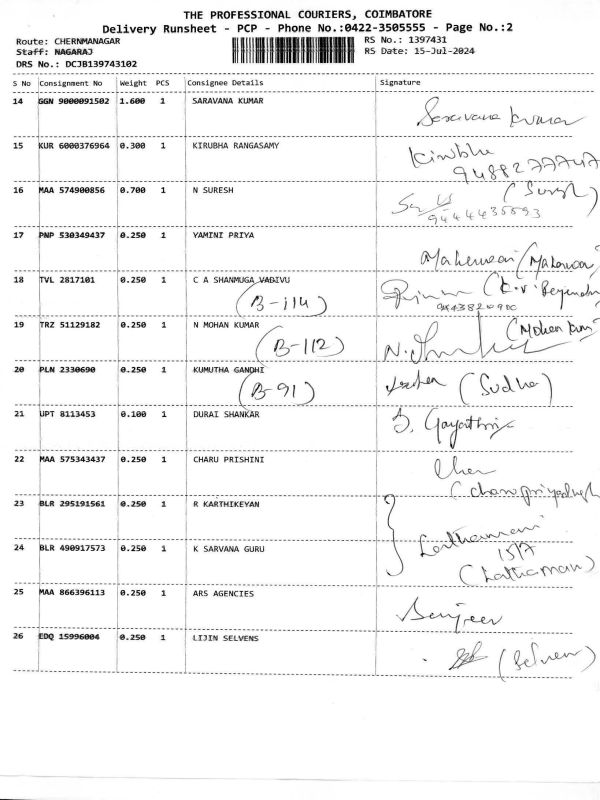 THE PROFESSIONAL COURIERS, COIMBATORE
Delivery Runsheet - PCP - Phone No.:0422-3505555 - Page No.:2
Route: CHERNMANAGAR RS No.: 1397431
Staff: NAGARAJ RS Date: 15-Jul-2024
DRS No.: DCJB139743102
S No Consignment No Weight PCS Consignee Details Signature
14 GGN 9000091502 1.600 1 SARAVANA KUMAR Saravana Kumar
15 KUR 6000376964 0.300 1 KIRUBHA RANGASAMY
16 MAA 574900856 0.700 1 N SURESH
17 PNP 530349437 0.250 1 YAMINI PRIYA
18 TVL 2817101 0.250 1 C A SHANMUGA VADIVU
(B-114)
19 TRZ 51129182 0.250 1 N MOHAN KUMAR
(B-112)
20 PLN 2330690 0.250 1 KUMUTHA GANDHI (Sudha)
(B-91)
21 UPT 8113453 0.100 1 DURAI SHANKAR
22 MAA 575343437 0.250 1 CHARU PRISHINI
23 BLR 295191561 0.250 1 R KARTHIKEYAN
24 BLR 490917573 0.250 1 K SARVANA GURU 15/7
25 MAA 866396113 0.250 1 ARS AGENCIES
26 EDQ 15996004 0.250 1 LIJIN SELVENS